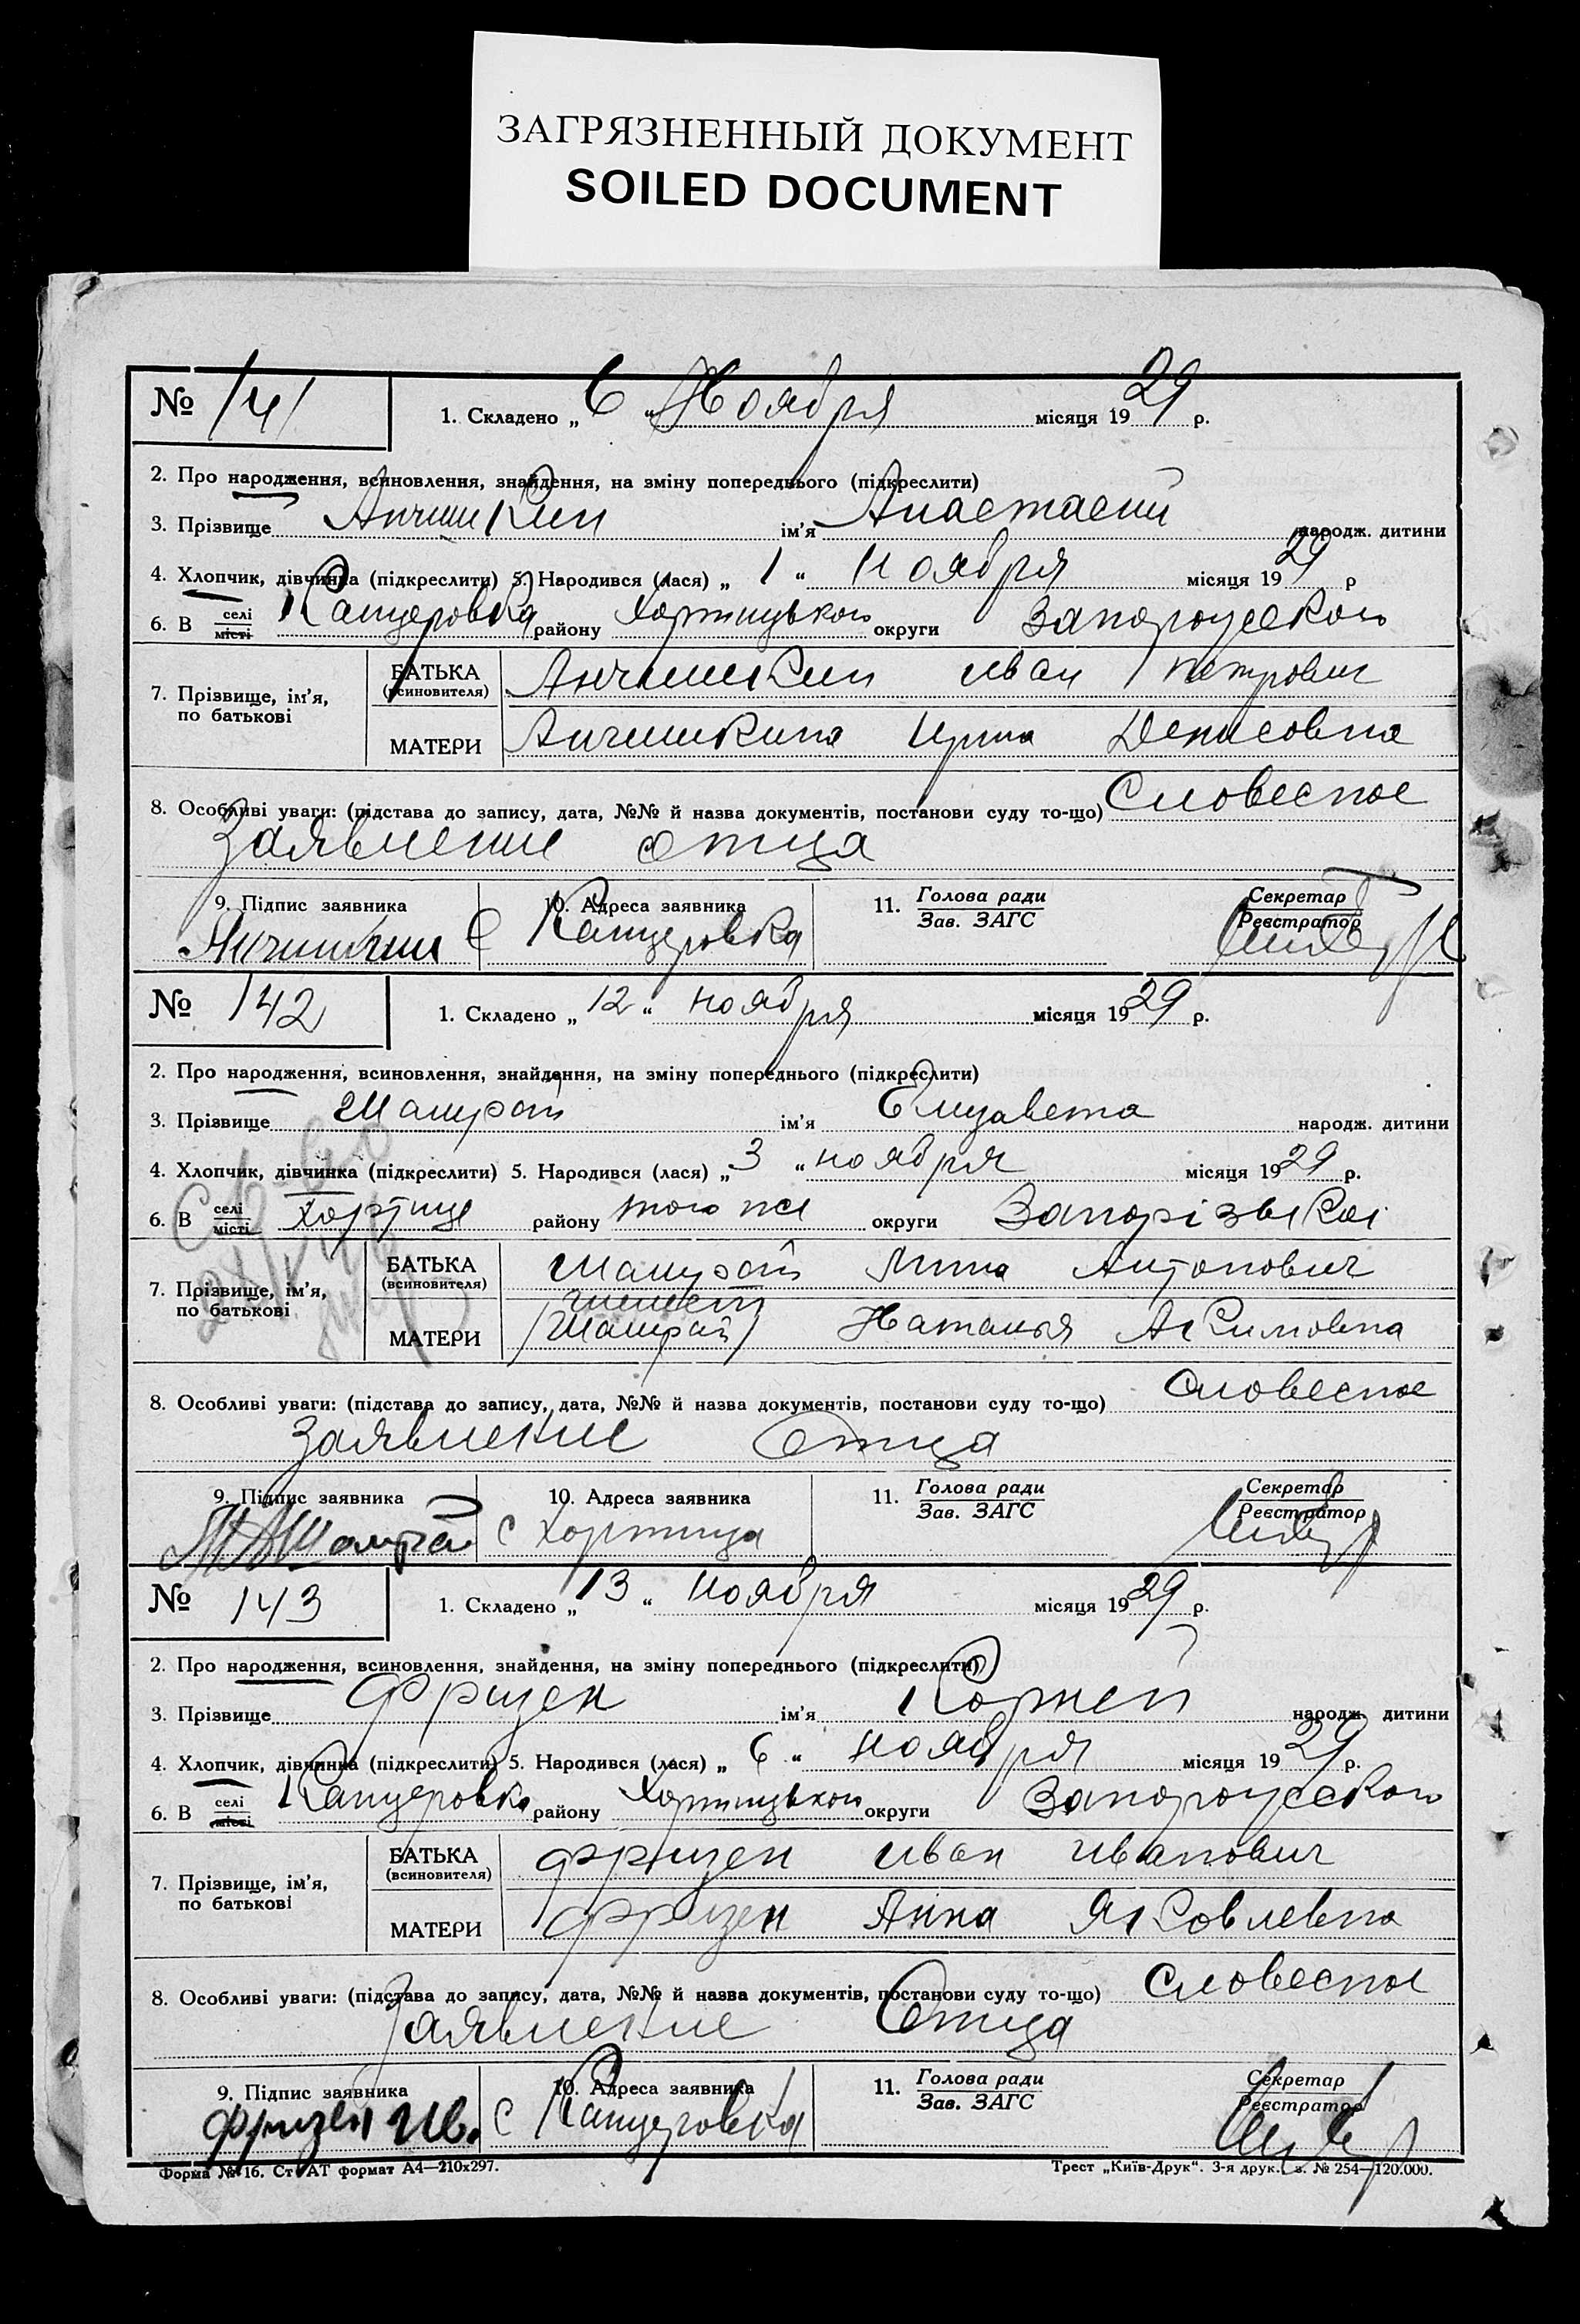 ЗАГРЯЗНЕННЫЙ ДОКУМЕНТ
SOILED DOCUMENT
№ 141 1. Складено „6“ Ноября місяця 1929 р.
2. Про народження, всиновлення, знайдення, на зміну попереднього (підкреслити)
3. Прізвище Анчишкин ім’я Анастасий народж. дитини
4. Хлопчик, дівчинка (підкреслити) 5. Народився (лася) „1“ ноября місяця 1929 р
6. В селі місті Канцеровка району Хортицького округи Запорожского
7. Прізвище, ім’я, по батькові
БАТЬКА (всиновителя) Анчишкин Иван Петрович
МАТЕРИ Анчишкина Ирина Денисовна
8. Особливі уваги: (підстава до запису, дата, №№ й назва документів, постанови суду то-що) Словесное
Заявление отца
9. Підпис заявника 10. Адреса заявника 11. Голова ради Зав. ЗАГС Секретар Реєстратор
Анчишкин С Канцеровка
№ 142 1. Складено „12“ ноября місяця 1929 р.
2. Про народження, всиновлення, знайдення, на зміну попереднього (підкреслити)
3. Прізвище Шамрай ім’я Елизавета народж. дитини
4. Хлопчик, дівчинка (підкреслити) 5. Народився (лася) „3“ ноября місяця 1929 р.
6. В селі місті Хортице району того же округи Запорізької
7. Прізвище, ім’я, по батькові
БАТЬКА (всиновителя) Шамрай Мина Антонович
МАТЕРИ (Шамрай) Наталья Акимовна
8. Особливі уваги: (підстава до запису, дата, №№ й назва документів, постанови суду то-що) Словесное
Заявление Отца
9. Підпис заявника 10. Адреса заявника 11. Голова ради Зав. ЗАГС Секретар Реєстратор
Шамрай с Хортица
№ 143 1. Складено „13“ ноября місяця 1929 р.
2. Про народження, всиновлення, знайдення, на зміну попереднього (підкреслити)
3. Прізвище Фризен ім’я Корней народж. дитини
4. Хлопчик, дівчинка (підкреслити) 5. Народився (лася) „6“ ноября місяця 1929 р.
6. В селі місті Канцеровка району Хортицького округи Запорожского
7. Прізвище, ім’я, по батькові
БАТЬКА (всиновителя) Фризен Иван Иванович
МАТЕРИ Фризен Анна Яковлевна
8. Особливі уваги: (підстава до запису, дата, №№ й назва документів, постанови суду то-що) Словесное
Заявление Отца
9. Підпис заявника 10. Адреса заявника 11. Голова ради Зав. ЗАГС Секретар Реєстратор
Фризен Ив. с Канцеровка
Форма № 16. Ст. АТ формат А4—210х297. Трест „Київ-Друк“. 3-я друк. з. № 254—120.000.